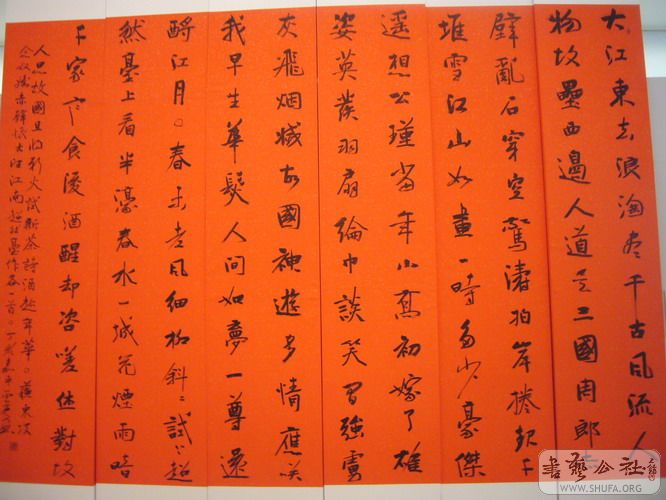 大江東去浪淘盡千古風流人
物故壘西邊人道是三國周郎赤
壁亂石穿空驚濤拍岸捲起千
堆雪江山如畫一時多少豪傑
遥想公瑾當年小喬初嫁了雄
姿英發羽扇綸巾談笑間強虜
灰飛烟滅故國神遊多情應笑
我早生華髮人間如夢一尊還
酹江月。春未老風細柳斜〻試上超
然臺上看半濠春水一城花煙雨暗
千家寒食後酒醒却咨嗟休對故
人思故國且將新火試新茶詩酒趁年華。蘇東坡
念奴嬌赤壁懷古望江南超然臺作各一首。丁亥
書藝公社
WWW.SHUFA.ORG